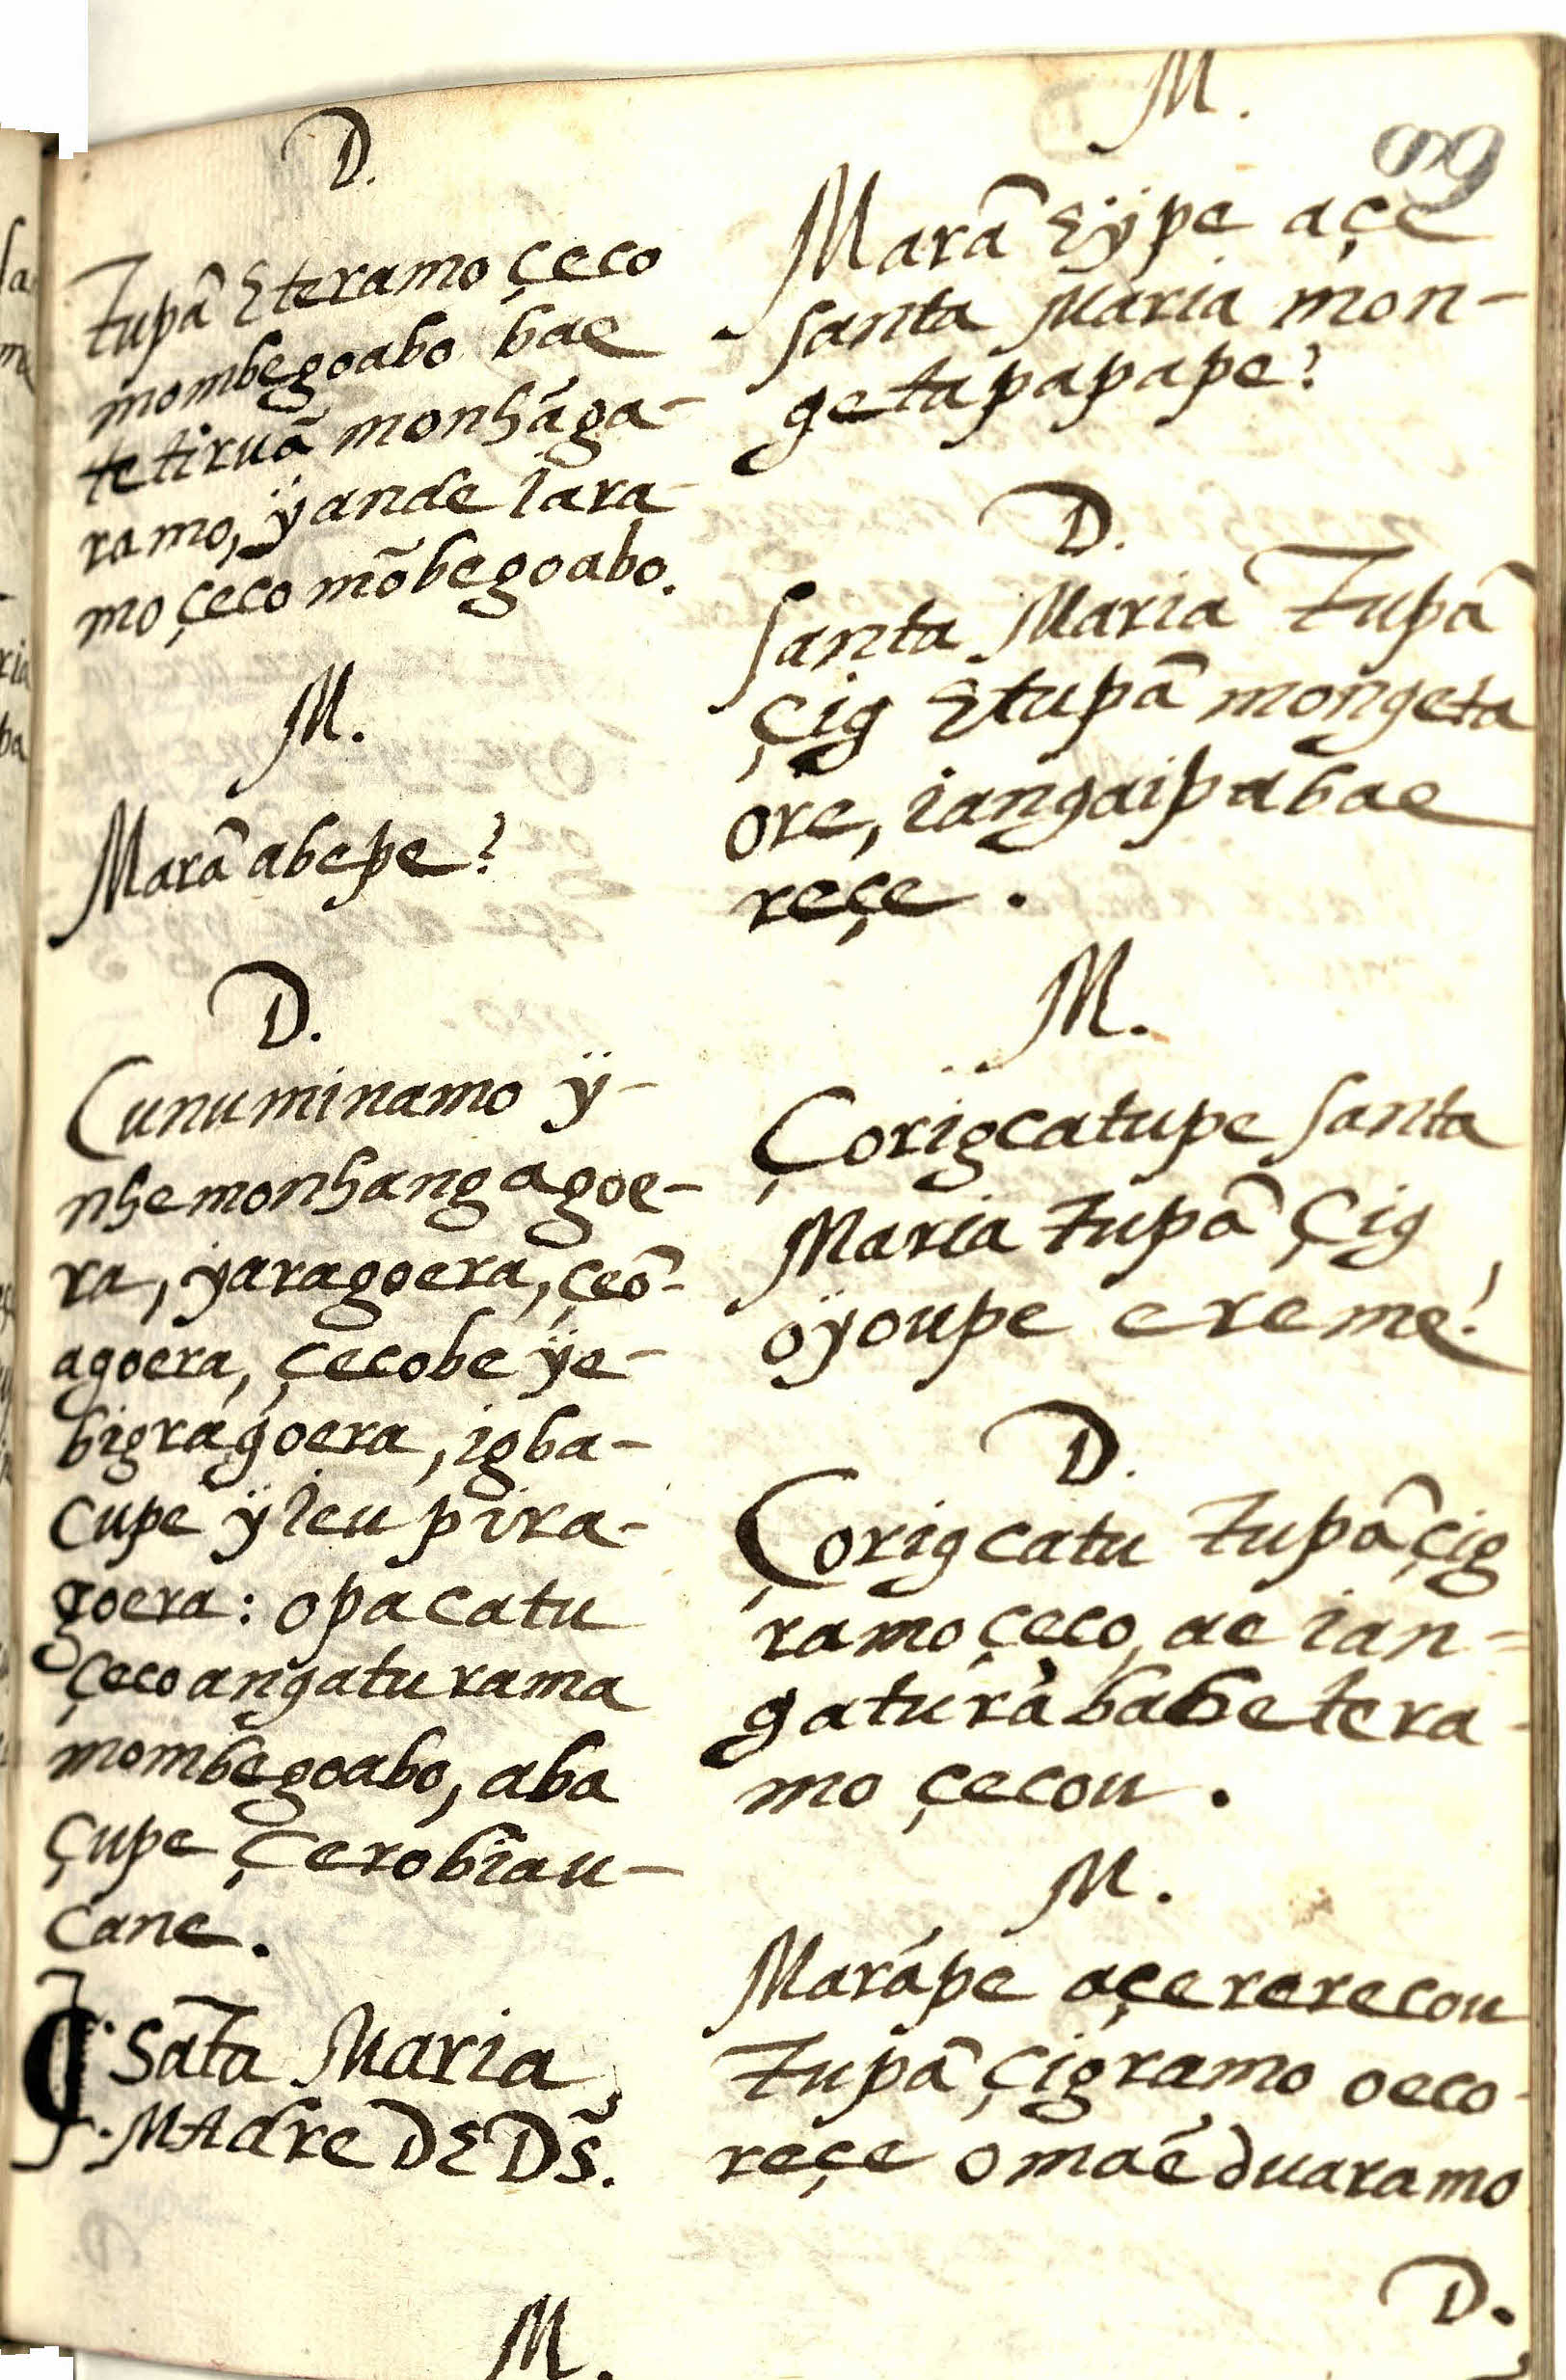 D.
Tupã Eteramo çeco
mombegoabo bae
tetiruã monhãga-
ramo, ÿande iara-
mo çeco mõbegoabo.
M.
Marã abepe?
D.
Cunuminamo ÿ-
nhemonhangagoe-
ra, ÿaragoera, çeõ-
agoera, çecobe ÿe-
bigrágoera, igba-
cupe ÿieupira-
goera: opacatu
çecoangaturama
mombegoabo, aba
çupe çerobiau-
cane.
Sãta Maria,
MAdre DE Ds̃.
M.
M.
69
Marã Eÿpe açe
Santa Maria mon-
getapapape?
D.
Santa Maria Tupã
çig Etupã mongeta
ore, iangaipabae
reçe.
M.
Çorigcatupe Santa
Maria Tupã çig
oÿoupe ereme?
D.
Çorigcatu Tupã çig
ramo çeco, ae ian-
gaturàbabetera-
mo çecou.
M.
Marápe açererecou
Tupã çigramo oeco-
reçe omaẽduaramo
D.